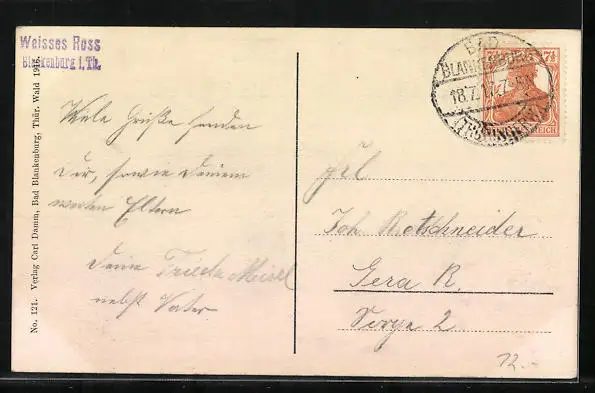 Weisses Ross
Blankenburg i. Th.
No. 121. Verlag Carl Damm, Bad Blankenburg, Thür. Wald 1916.
Viele Grüße senden
Dir, sowie Deinen
werten Eltern
Deine Frieda Meisel
nebst Vater
BAD
BLANKENBURG
18.7.17. 7-8 N
(THÜRINGERWALD)
7½ 7½
REICH
Frl.
Joh. Rotschneider
Gera R.
Sorge 2
12.-